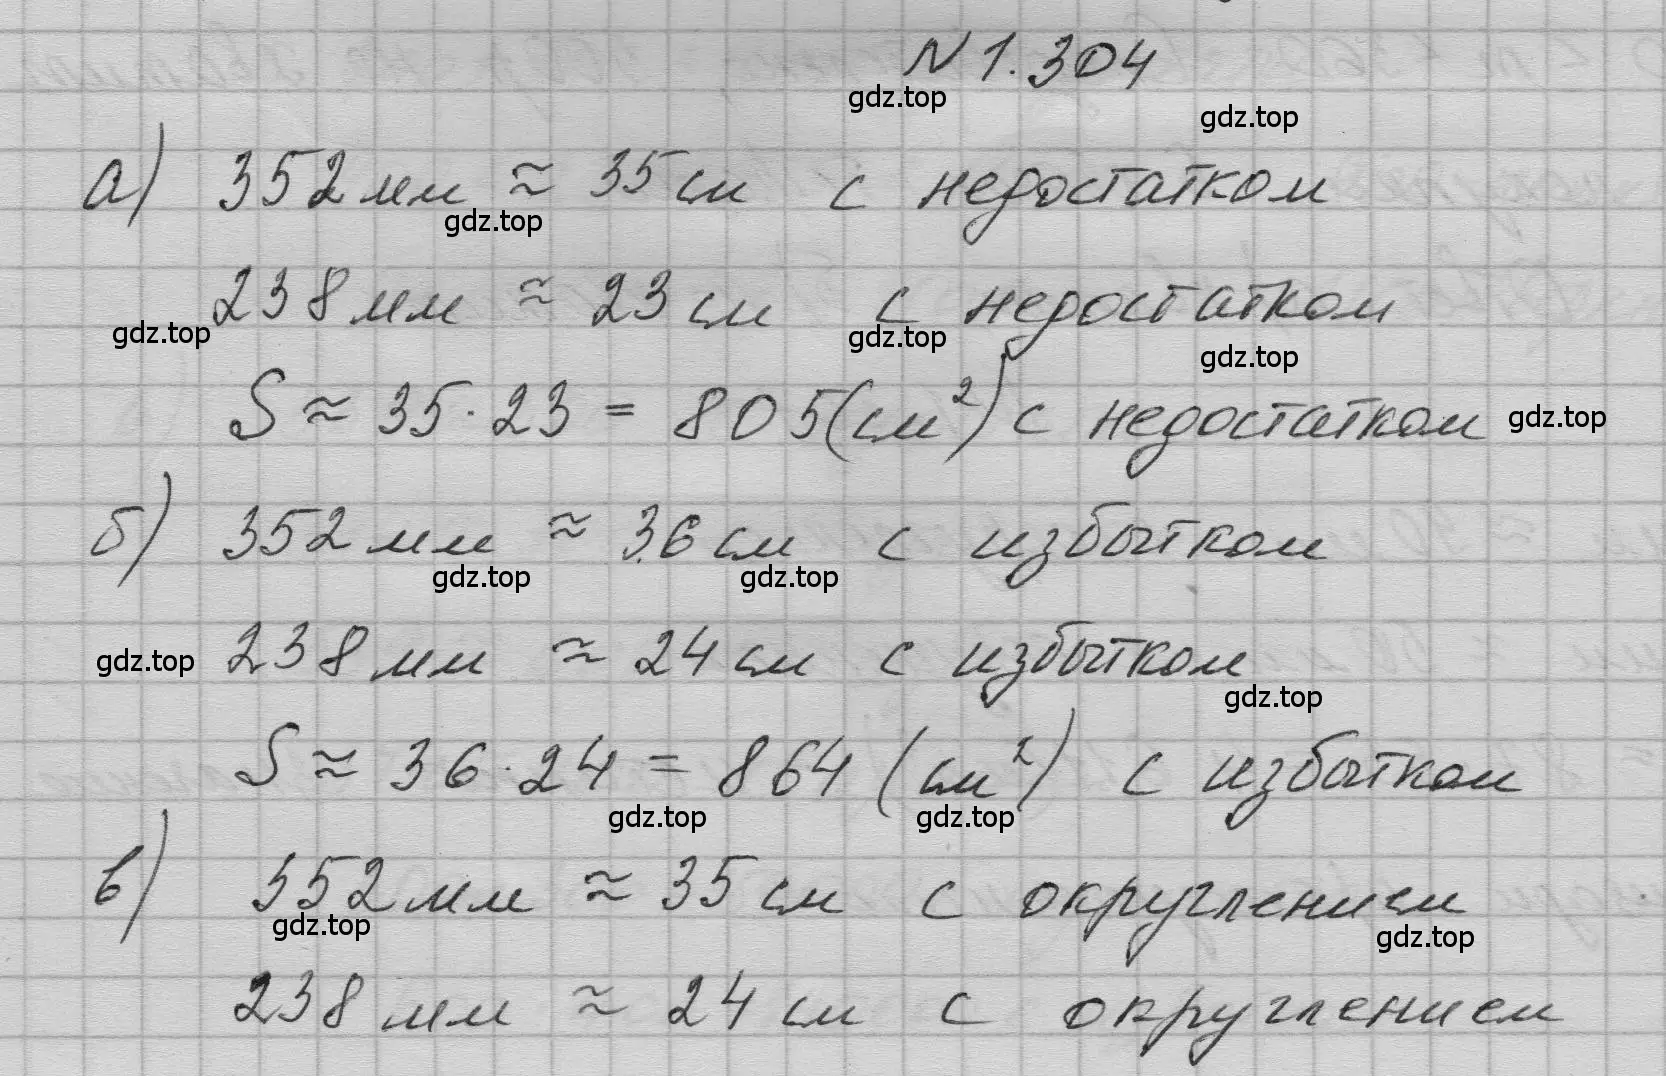 N 1.304
gdz.top
gdz.top
а) 352 мм ≈ 35 см с недостатком
gdz.top
238 мм ≈ 23 см с недостатком
gdz.top
gdz.top
gdz.top
S ≈ 35 · 23 = 805 (см²) с недостатком
gdz.top
б) 352 мм ≈ 36 см с избытком
gdz.top
gdz.top
238 мм ≈ 24 см с избытком
gdz.top
gdz.top
S ≈ 36 · 24 = 864 (см²) с избытком
gdz.top
gdz.top
в) 352 мм ≈ 35 см с округлением
gdz.top
gdz.top
238 мм ≈ 24 см с округлением